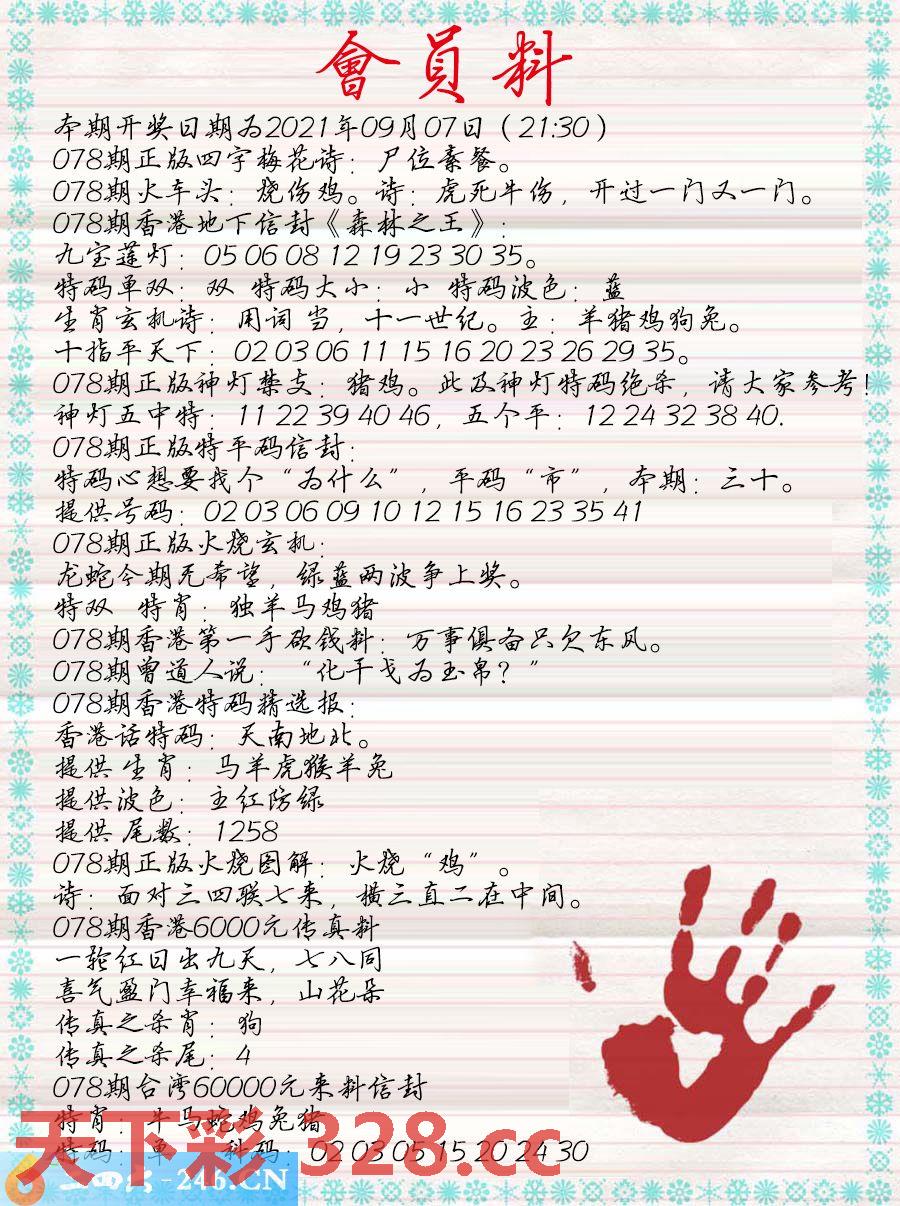 會員料
本期开奖日期为2021年09月07日（21:30）
078期正版四字梅花诗：尸位素餐。
078期火车头：烧伤鸡。诗：虎死牛伤，开过一门又一门。
078期香港地下信封《森林之王》：
九宝莲灯：05 06 08 12 19 23 30 35。
特码单双：双 特码大小：小 特码波色：蓝
生肖玄机诗：用词 当，十一世纪。主：羊猪鸡狗兔。
十指平天下：02 03 06 11 15 16 20 23 26 29 35。
078期正版神灯禁支：猪鸡。此及神灯特码绝杀，请大家参考！
神灯五中特：11 22 39 40 46，五个平：12 24 32 38 40.
078期正版特平码信封：
特码心想要找个“为什么”，平码“市”，本期：三十。
提供号码：02 03 06 09 10 12 15 16 23 35 41
078期正版火烧玄机：
龙蛇今期无希望，绿蓝两波争上奖。
特双 特肖：独羊马鸡猪
078期香港第一手砍钱料：万事俱备只欠东风。
078期曾道人说：“化干戈为玉帛？”
078期香港特码精选报：
香港话特码：天南地北。
提供 生肖：马羊虎猴羊兔
提供波色：主红防绿
提供 尾数：1258
078期正版火烧图解：火烧“鸡”。
诗：面对三四联七来，横三直二在中间。
078期香港6000元传真料
一轮红日出九天，七八同
喜气盈门幸福来，山花朵
传真之杀肖：狗
传真之杀尾：4
078期台湾60000元来料信封
特肖：牛马蛇鸡兔猪
特码：单 种码：02 03 05 15 20 24 30
天下彩 328.cc
二四六-246.CN